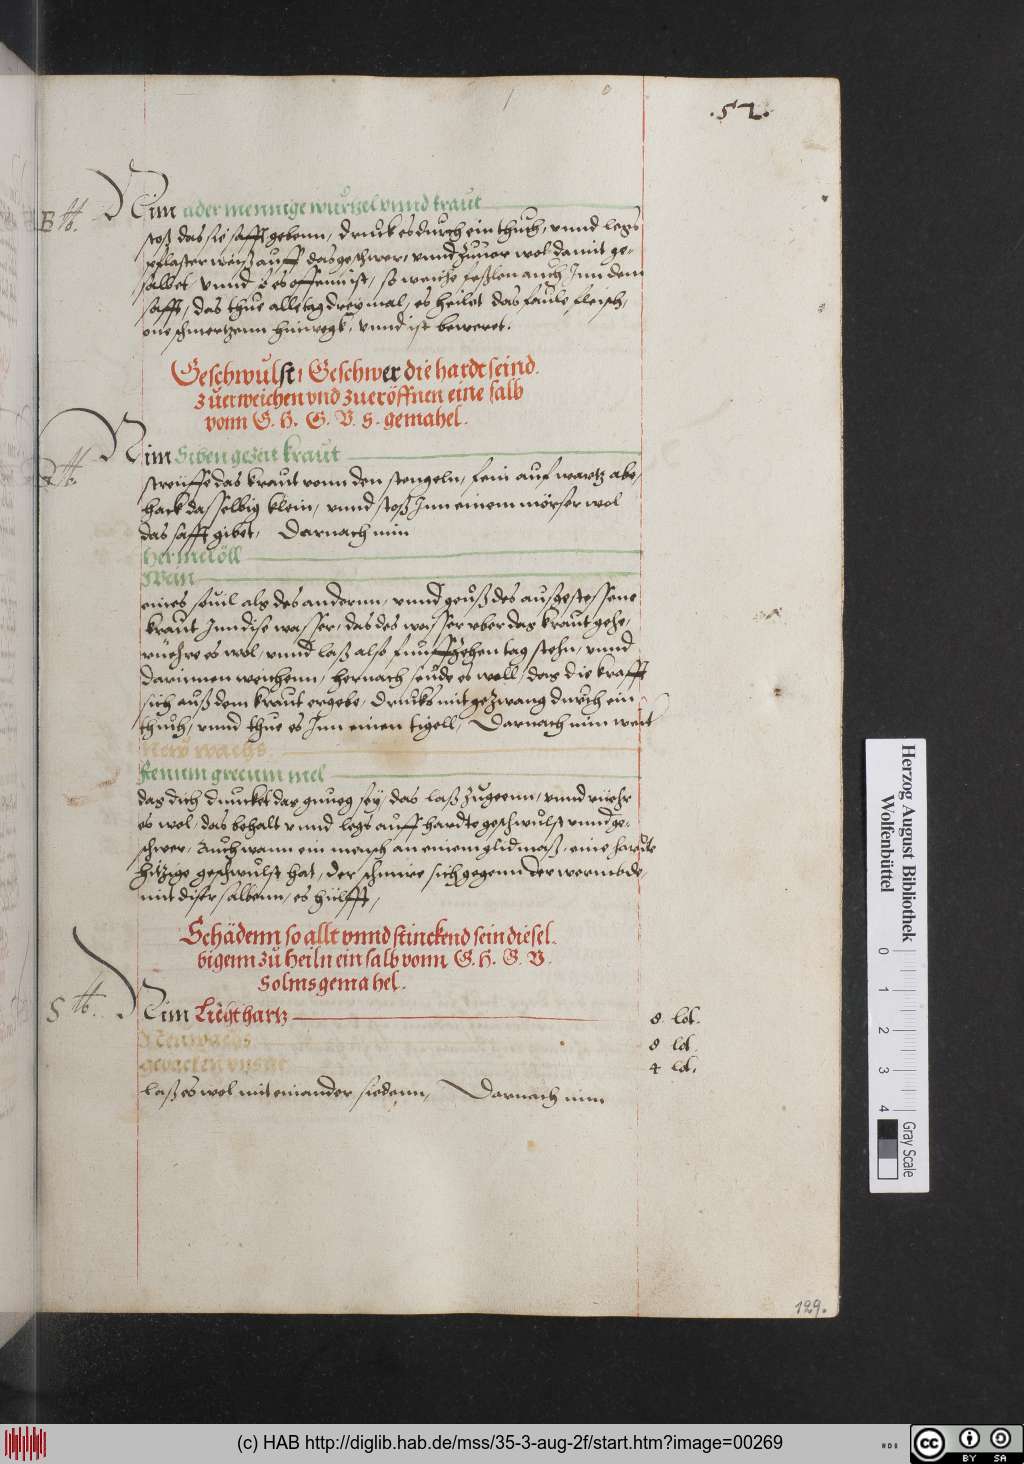 .52.
Nim ader mennige wurtzel vnnd kraut
stoß das sie safft gebenn, druck es durch ein thuch, vnnd legs
pflaster weiß auff das geschwer, vnnd zuuor wol damit ge-
salbet, vnnd so es offenn ist, so weiche feßlen auch Inn dem
safft, das thue alle tag drey mal, es heilet das faule fleisch,
one schmertzenn hinwegk, vnnd ist beweret.
Geschwulst, Geschwer die hardt seind.
zuerweichen vnd zueröffnen eine salb
vonn G. H. G. V. S. gemahel.
Nim Siben gezeit kraut
streüffe das kraut vonn den stengeln, fein auf wartz abe,
hack dasselbig klein, vnnd stoß Inn einem mörser wol
das safft gibet, Darnach nim
Wein
eines souil als des andernn, vnnd geuß des ausgestossene
kraut Inn dise wasser, das des wasser vber das kraut gehe,
rüehre es wol, vnnd laß also funffzehen tag stehn, vnnd
darinnen weichenn, hernach seude es woll, das die krafft
sich auß dem kraut ergebe, drucks mit gezwang durch ein
thuch, vnnd thue es Inn einen tigell, Darnach nim weit
New wachs
Fenum grecum mel
das dich duncket das gnueg sey, das laß zugeenn, vnnd rüehr
es wol, das behalt vnnd legs auff hardte geschwulst vnnd ge-
schwer, Auch wann ein mensch an einem glidmaß, eine
hitzige geschwulst hat, der schmire sich gegenn der
mit diser salbenn, es hülfft,
Schädenn so allt vnnd stinckend sein diesel-
bigenn zu heiln ein salb vonn G. H. G. V.
Solms gemahel.
Nim Liechthartz 8 lot.
Newwachs 8 lot
4 lot.
laß es wol mit einander siedenn, Darnach nim
129.
Herzog August Bibliothek
Wolfenbüttel
0 1 2 3 4
Gray Scale
(c) HAB http://diglib.hab.de/mss/35-3-aug-2f/start.htm?image=00269
cc BY SA